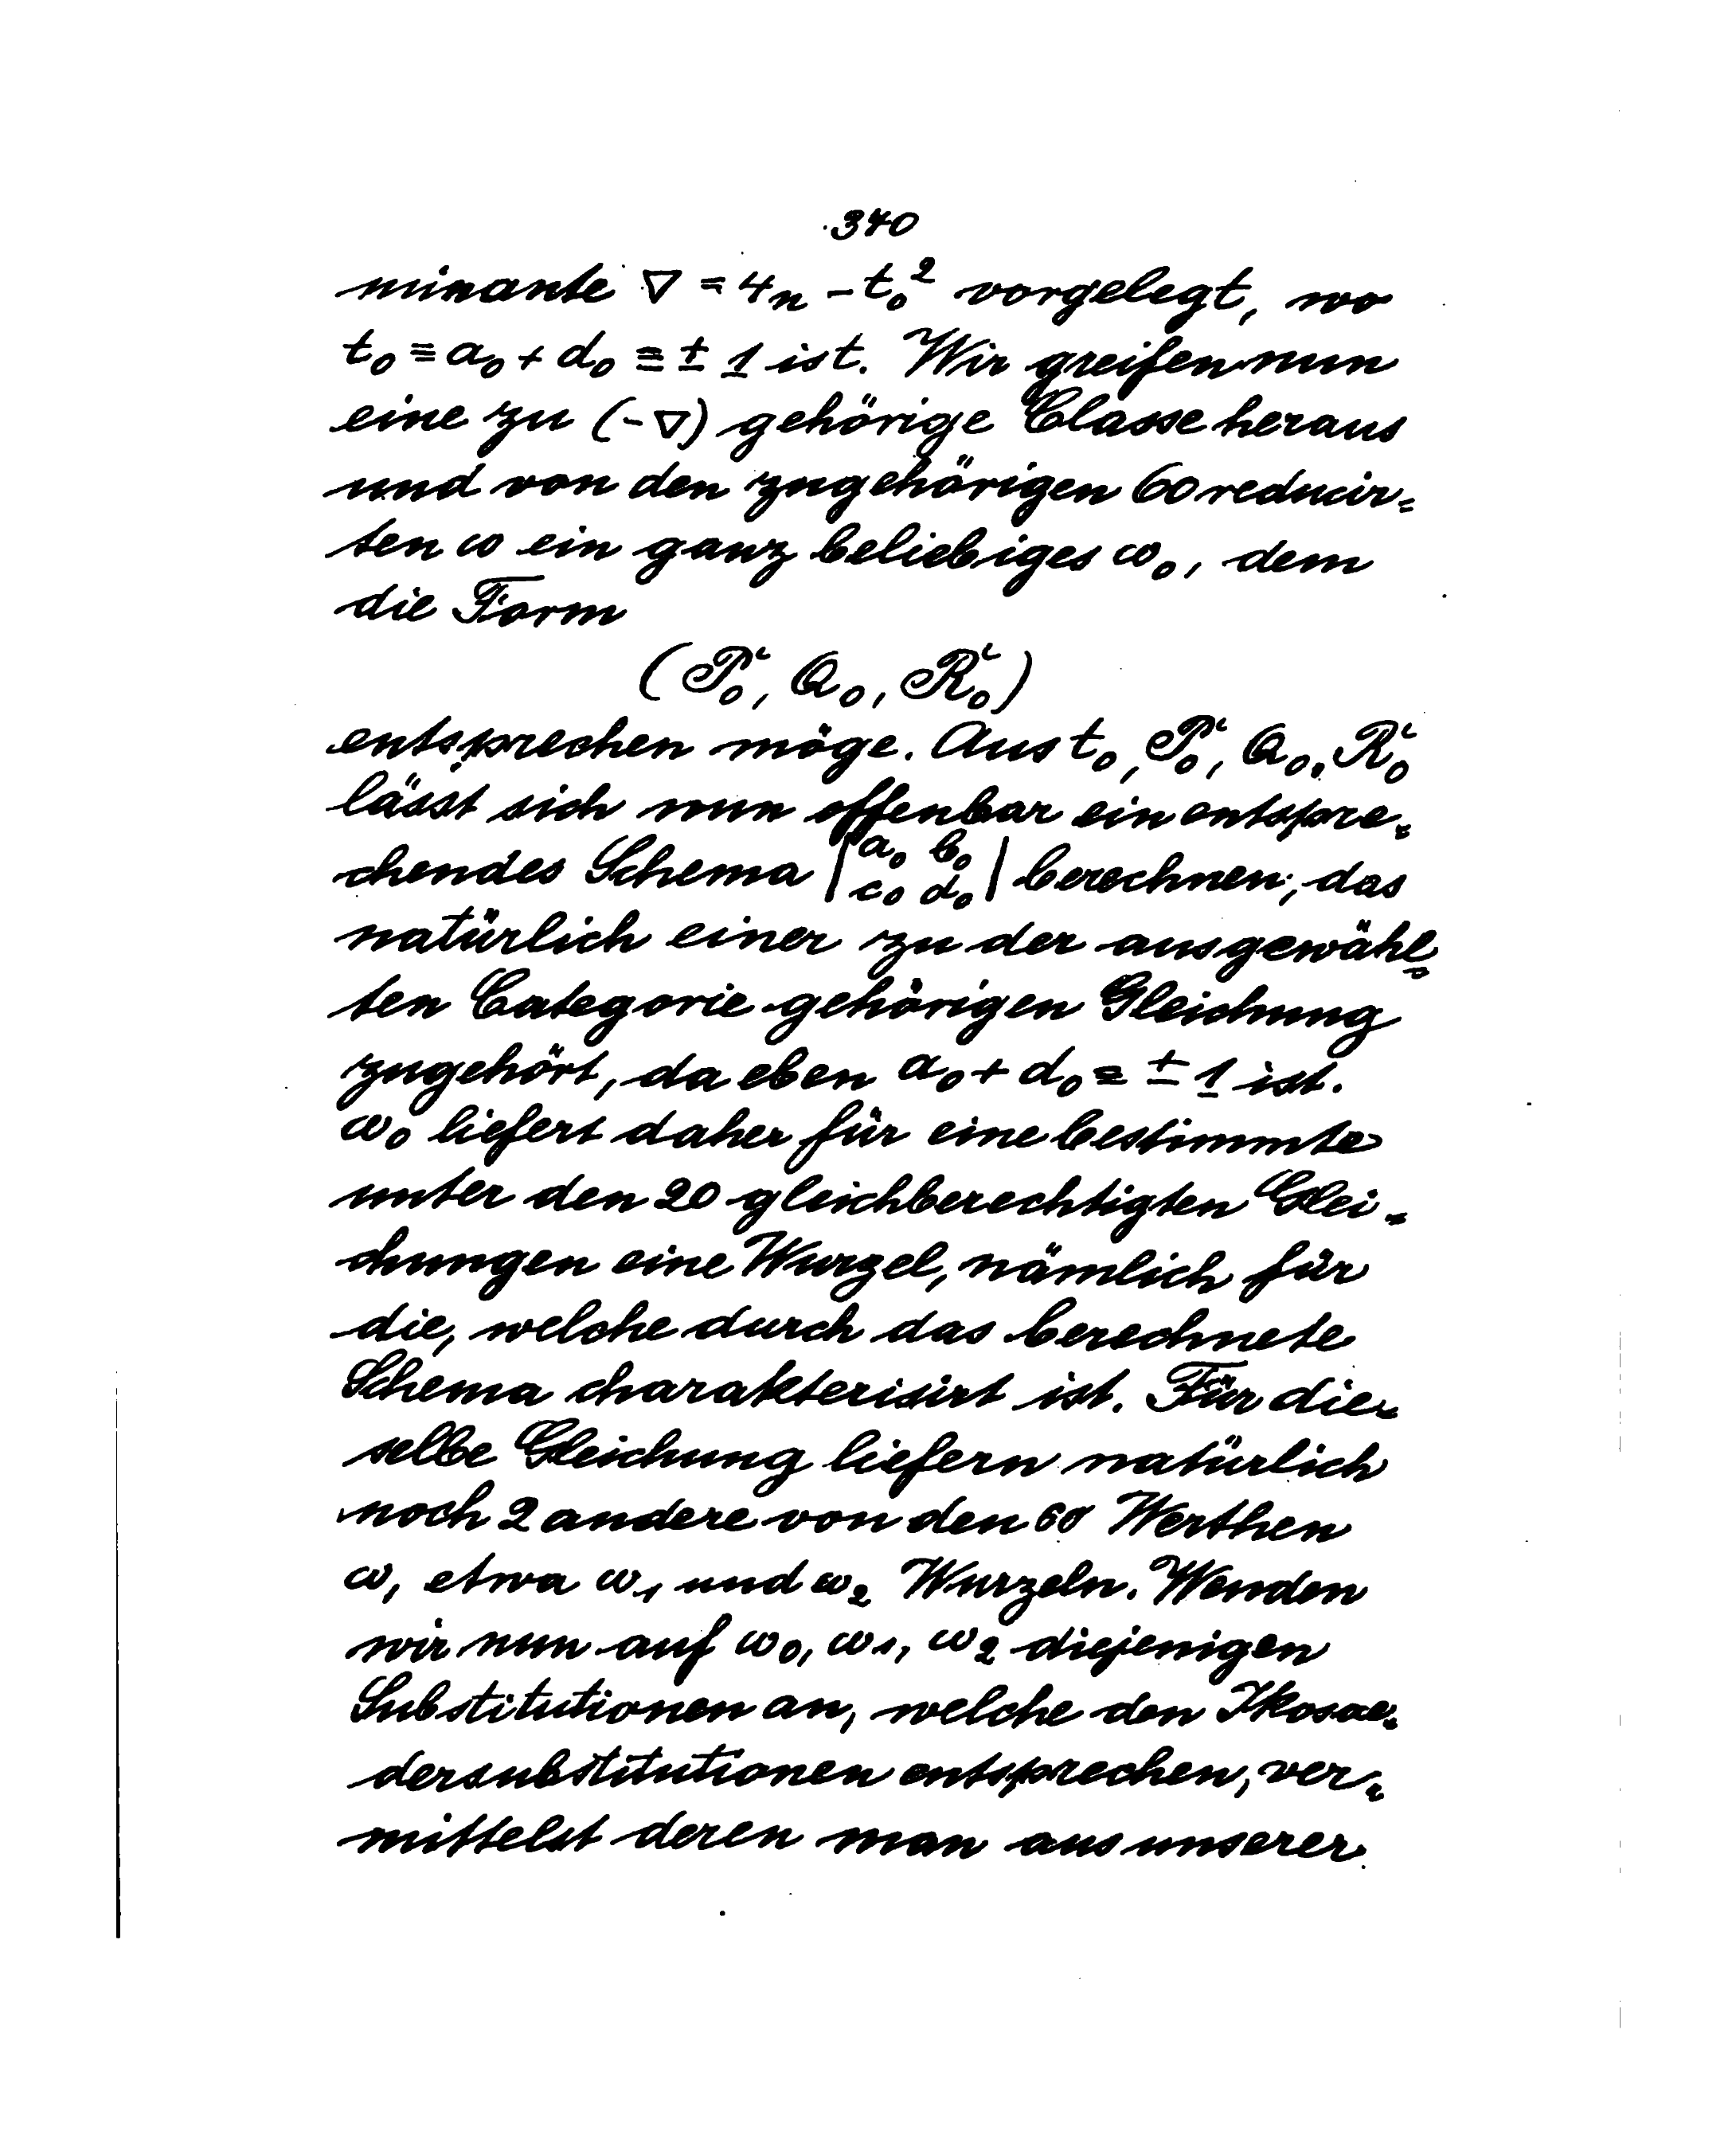 340
minante ∇ = 4n - t₀² vorgelegt, wo
t₀ ≡ a₀ + d₀ ≡ ± 1 ist. Wir greifen nun
eine zu (-∇) gehörige Classe heraus
und von den zugehörigen 60 reducir=
ten ω ein ganz beliebiges ω₀, dem
die Form
(P₀, Q₀, R₀)
entsprechen möge. Aus t₀, P₀, Q₀, R₀
lässt sich nun offenbar ein entspre=
chendes Schema |a₀ b₀ c₀ d₀| berechnen, das
natürlich einer zu der ausgewähl=
ten Categorie gehörigen Gleichung
zugehört, da eben a₀ + d₀ ≡ ± 1 ist.
ω₀ liefert daher für eine bestimmte
unter den 20 gleichberechtigten Glei=
chungen eine Wurzel, nämlich für
die, welche durch das berechnete
Schema charakterisirt ist. Für die=
selbe Gleichung liefern natürlich
noch 2 andere von den 60 Werthen
ω, etwa ω₁ und ω₂ Wurzeln. Wenden
wir nun auf ω₀, ω₁, ω₂ diejenigen
Substitutionen an, welche den Ikosae=
dersubstitutionen entsprechen, ver=
mittelst deren man aus unserer